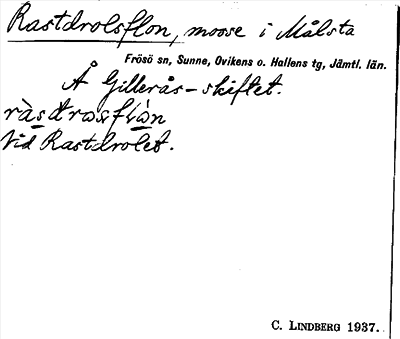 Rastdrolsflon, mosse i Målsta
Frösö sn, Sunne, Ovikens o. Hallens tg, Jämtl. län.
Å Gillerås-skiftet.
Vid Rastdrolet.
C. LINDBERG 1937.